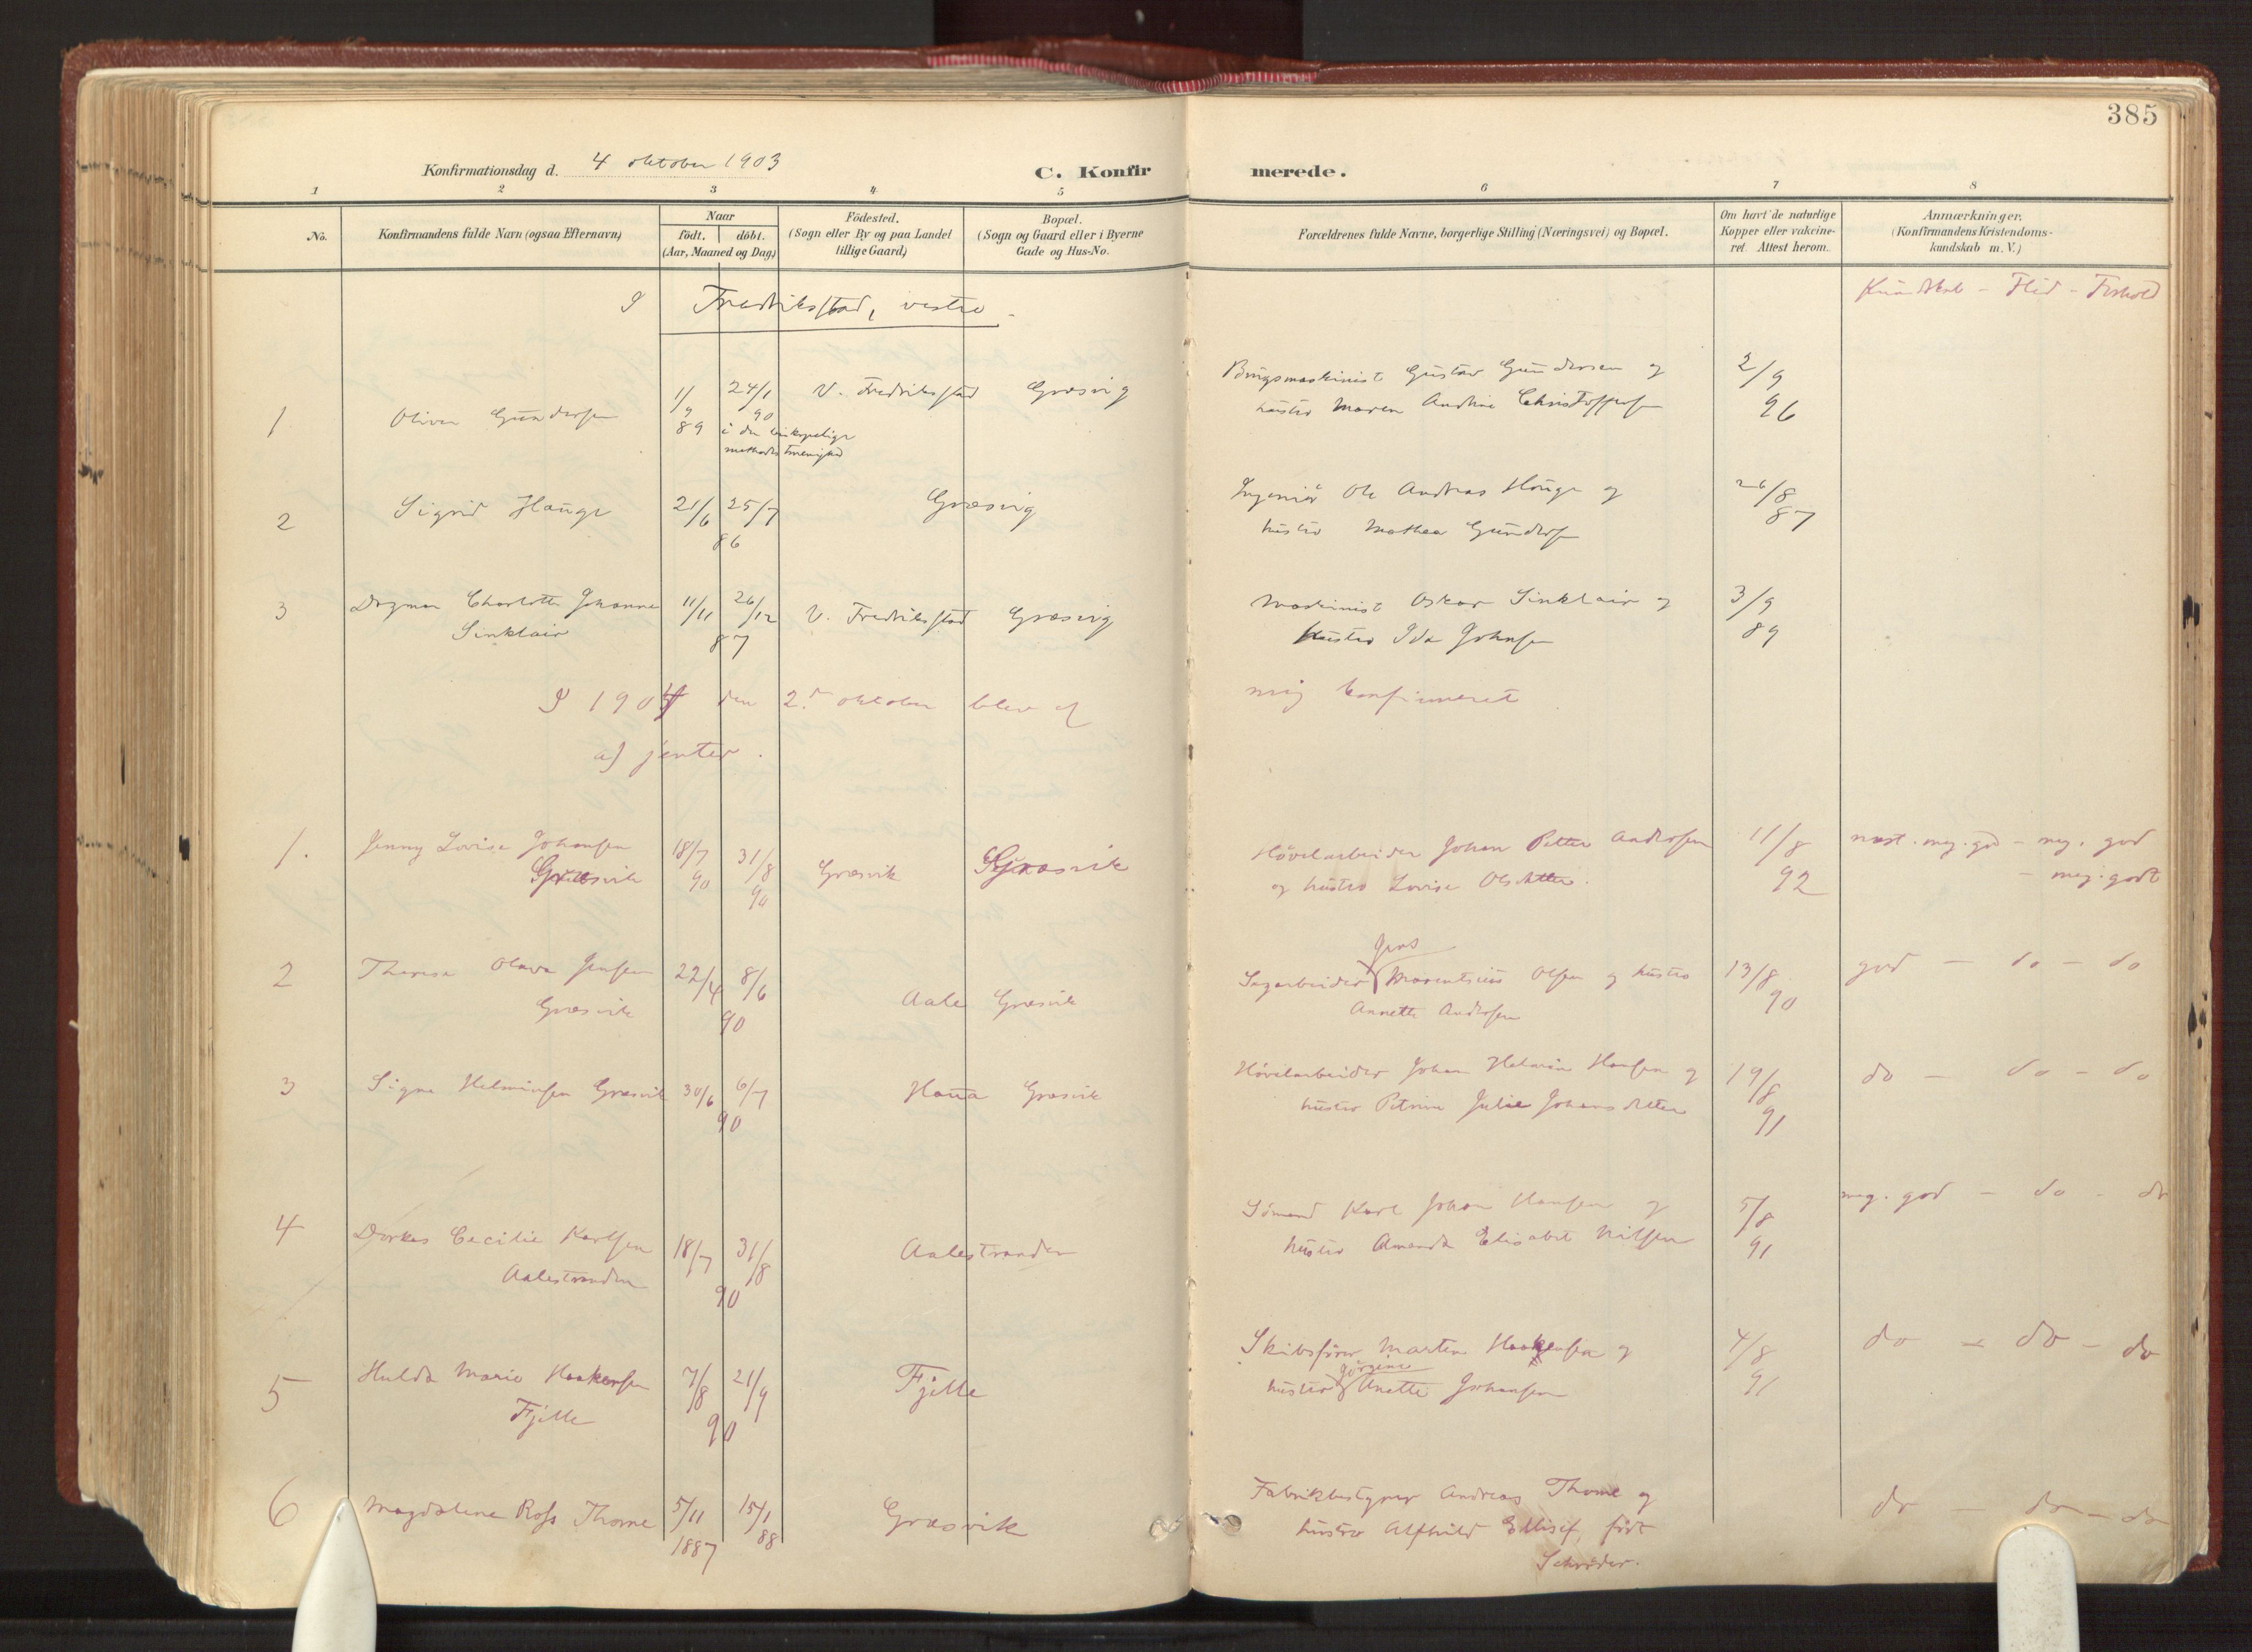 385
Konfirmationsdag d. 4 oktober 1903
C. Konfirmerede.
1 2 3 4 5 6 7 8
No.
Konfirmandens fulde Navn (ogsaa Efternavn)
Naar
födt. döbt.
(Aar, Maaned og Dag)
Födested.
(Sogn eller By og paa Landet
tillige Gaard)
Bopæl.
(Sogn og Gaard eller i Byerne
Gade og Hus-No.
Forældrenes fulde Navne, borgerlige Stilling (Næringsvei) og Bopæl.
Om havt de naturlige
Kopper eller vakcine-
ret. Attest herom.
Anmærkninger.
(Konfirmandens Kristendoms-
kundskab m. V.)
Kundskab - Flid - Forhold
I Fredriksstad, vestre
1 Oliver Gundersen 11/9 89 24/1 90 V. Fredriksstad Græsvig
i den
Brugsmaskinist Gustav Gundersen og 2/9
hustru Maren Andrine Christoffersen 96
2 Sigrid Hauge 21/6 25/7 Græsvig
86
Ingeniör Ole Andreas Hauge og 26/8
hustru Mathea Gundersen 87
3 Dagmar Charlotte Johanne 11/11 26/12 V. Fredriksstad Græsvig
Sinklair 87
Maskinist Oskar Sinklair og 3/9
hustru Ida Johnsen 89
I 1904 den 2. oktober blev af mig konfirmeret
a) jenter.
1. Jenny Lovise Johansen 18/7 31/8
Græsvik 90 90 Græsvik Græsvik
Hövelarbeider Johan Petter Andersen 11/8 næst. meg. god - meg. god
og hustru Lovise Olsdatter. 92 - meg. godt
2 Therese Olava Jensen 22/4 8/6
Græsvik 90 Aale Græsvik
Jens
Sagarbeider Morentsius Olsen og hustru 13/8 god - do - do
Annette Andersen 90
3 Signe Helminsen Græsvik 30/6 6/7 Haua Græsvik
90
Hövelarbeider Johan Helmin Hansen og 19/8 do - do - do
hustru Petrine Julie Johansdatter 91
4 Dorkas Cecilie Karlsen 18/7 31/8 Aalestranden
Aalestranden 90
Sömand Karl Johan Hansen og 5/8 meg. god - do - do
hustru Amanda Elisabet Nilsen 91
5 Hulda Marie Haakensen 7/8 21/9 Fjelle
Fjelle 90
Skibsförer Marten Haakensen og 4/8 do - do - do
Jörgine
hustru Anette Johansen 91
6 Magdalene Ross Thorne 5/11 15/1 Græsvik
1887 88
Fabrikbestyrer Andreas Thorne og do - do - do
hustru Alfhild Ellisif, född
Schröder.